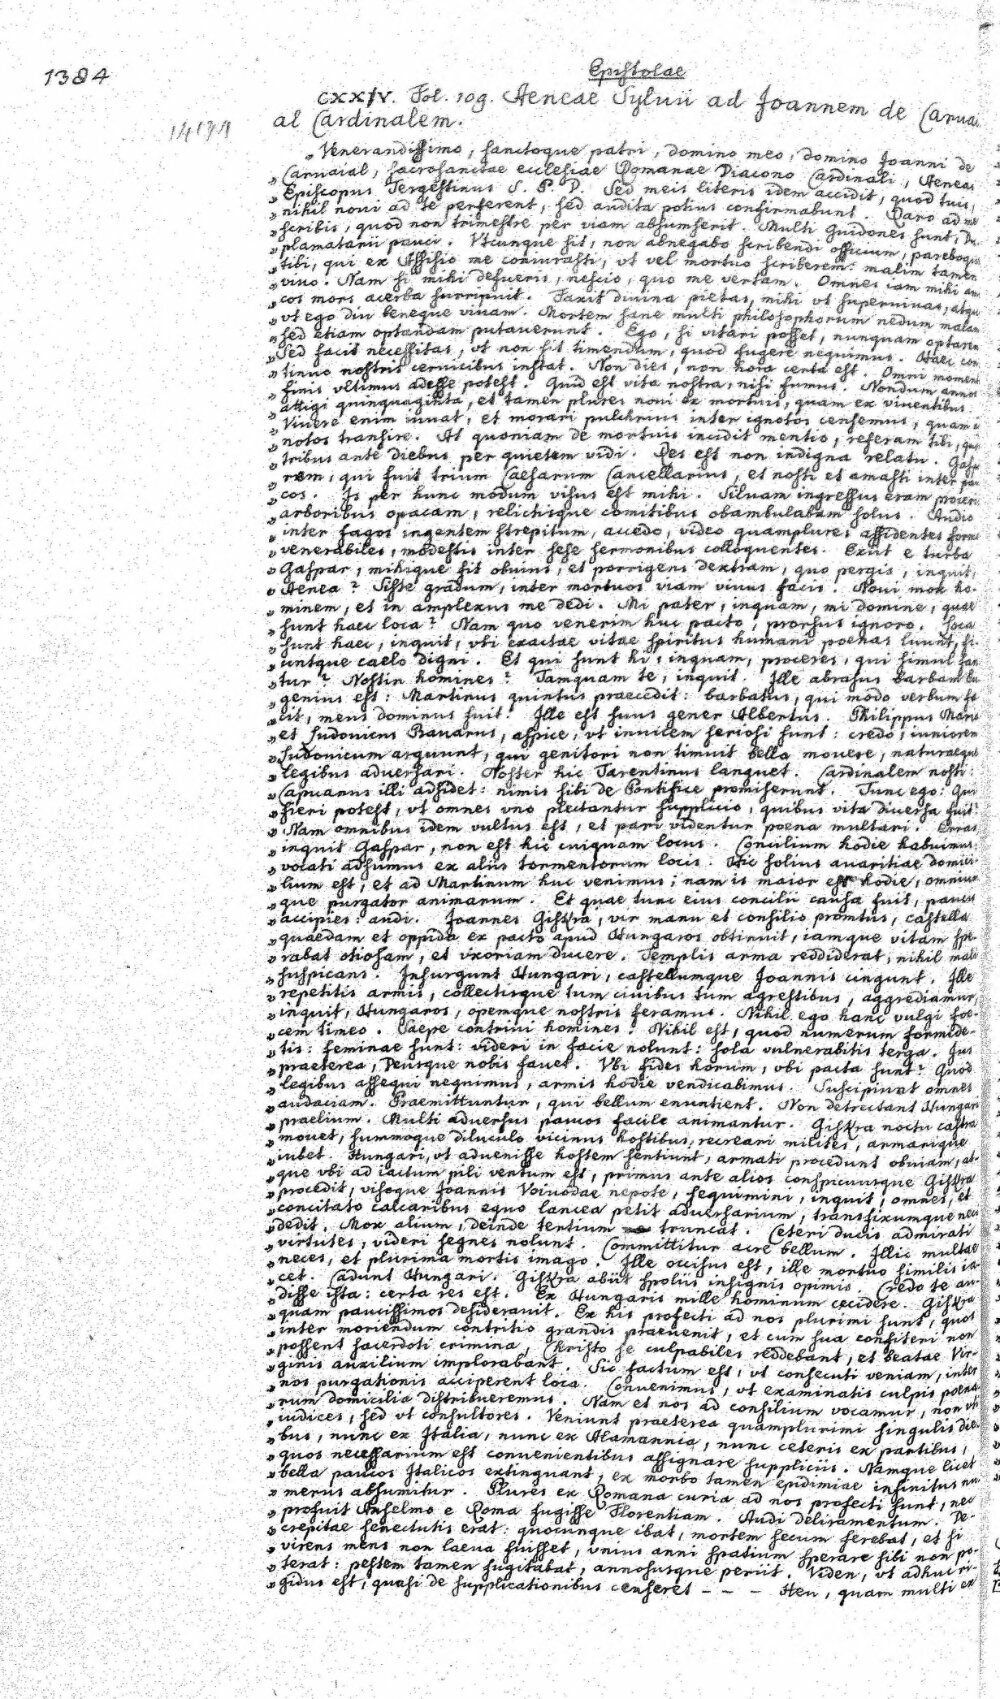 1384
Epistolae
CXXIV. Fol. 109. Aeneae Sylvii ad Joannem de Carvai
al Cardinalem.
„Venerandissimo, sanctoque patri, domino meo, domino Joanni de
„Carvaial, sacrosanctae ecclesiae Romanae Diacono Cardinali, Aeneas
„Episcopus Tergestinus S. P. D. Sed meis literis idem accidit, quod tuis,
„nihil novi ad te perferent, sed audita potius confirmabunt. Raro ad me
„scribis, quod non trimestre per viam absumserit. Multi Guidones sunt,
„plamatarii pauci. Vtcunque sit, non abnegabo scribendi officium, pareboque
„tibi, qui ex Assisio me coniurasti, vt vel mortuo scriberem: malim tamen
„vivo. Nam si mihi defueris, nescio, quo me vertam. Omnes iam mihi ami
„cos mors acerba surripuit. Faxit divina pietas, mihi vt supervivas, atque
„vt ego diu beneque vivam. Mortem sane multi philosophorum nedum malam
„sed etiam optandam putaverunt. Ego, si vitari posset, nunquam optarem
„Sed facit necessitas, vt non sit timendum, quod fugere nequimus. Haec con
„tinuo nostris cervicibus instat. Non dies, non hora certa est. Omni moment
„finis vltimus adesse potest. Quid est vita nostra, nisi fumus. Nondum annos
„attigi quinquaginta, et tamen plures novi ex mortuis, quam ex viventibus.
„Vivere enim iuvat, et morari pulchrius inter ignotos censemus, quam
„notos transire. At quoniam de mortuis incidit mentio, referam tibi, quae
„tribus ante diebus per quietem vidi. Res est non indigna relatu. Gaspa
„rem, qui fuit trium Caesarum Cancellarius, et nosti et amasti inter pau
„cos. Is per hunc modum visus est mihi. Siluam ingressus eram proceris
„arboribus opacam, relictisque comitibus obambulabam solus. Audio
„inter fagos ingentem strepitum, accedo, video quamplures assidentes forma
„venerabiles, modestis inter sese sermonibus colloquentes. Exiit e turba
„Gaspar, mihique fit obvius, et porrigens dextram, quo pergis, inquit,
„Aenea? Siste gradum, inter mortuos viam vivus facis. Novi mox ho-
„minem, et in amplexus me dedi. Mi pater, inquam, mi domine, quae
„sunt haec loca? Nam quo venerim huc pacto, prorsus ignoro. Loca
„sunt haec, inquit, vbi exactae vitae spiritus humani poenas luunt, fi-
„untque caelo digni. Et qui sunt hi, inquam, proceres, qui simul fan
„tur? Nostin homines? Tamquam te, inquit. Ille abrasus barbam Eu
„genius est: Martinus quintus praecedit: barbatus, qui modo verbum fe
„cit, meus dominus fuit: Ille est suus gener Albertus. Philippus Maria
„et Ludovicus Bavarus, aspice, vt invicem seriosi sunt: credo, iuniorem
„Ludovicum arguunt, qui genitori non timuit bella movere, naturaeque
„legibus adversari. Noster hic Tarentinus languet. Cardinalem nosti:
„Capuanus illi adsidet: nimis sibi de Pontifice promiserunt. Tunc ego: Qui
„fieri potest, vt omnes vno plectantur supplicio, quibus vita diversa fuit.
„Nam omnibus idem vultus est, et pari videntur poena multari. Erras
„inquit Gaspar, non est hic cuiquam locus. Concilium hodie habuimus
„vocati adsumus ex aliis tormentorum locis. Hic solius avaritiae domici-
„lium est, et ad Martinum huc venimus; nam is maior est hodie, omnium
„que purgator animarum. Et quae tunc eius concilii causa fuit, paucis
„accipies: audi. Joannes Giskra, vir manu et consilio promtus, castella
„quaedam et oppida ex pacto apud Hungaros obtinuit, iamque vitam spe
„rabat otiosam, et vxoriam ducere. Templis arma reddiderat, nihil mali
„suspicans. Insurgunt Hungari, castellumque Joannis cingunt. Ille
„repetitis armis, collectisque tum civibus tum agrestibus, aggrediamur,
„inquit, Hungaros, opemque nostris feramus. Nihil ego hanc vulgi foe-
„cem timeo. Saepe contrivi homines. Nihil est, quod numerum formide-
„tis: feminae sunt: videri in facie nolunt: sola vulnerabitis terga. Jus
„praeterea, Deusque nobis favet. Vbi fides horum, vbi pacta sunt? Quod
„legibus assequi nequimus, armis hodie vendicabimus. Suscipiunt omnes
„audaciam. Praemittuntur, qui bellum enuntient. Non detrectant Hungari
„praelium. Multi adversus paucos facile animantur. Giskra noctu castra
„movet, summoque diluculo vicinus hostibus, recreari milites, armarique
„iubet. Hungari, vt advenisse hostem sentiunt, armati procedunt obviam, at-
„que vbi ad iactum pili ventum est, primus ante alios conspicuusque Giskra
„procedit, visoque Joannis Voivodae nepote, sequimini, inquit, omnes, et
„concitato calcaribus equo lancea petit adversarium, transfixumque neci
„dedit. Mox alium, deinde tertium truncat. Ceteri ducis admirati
„virtutes, videri segnes nolunt. Committitur acre bellum. Illic multae
„neces, et plurima mortis imago. Ille occisus est, ille mortuo similis ia-
„cet. Cadunt Hungari. Giskra abiit spoliis insignis opimis. Credo te au-
„disse ista: certa res est. Ex Hungaris mille hominum cecidere. Giskra
„quam paucissimos desideravit. Ex his profecti ad nos plurimi sunt, quos
„inter moriendum contritio grandis praevenit, et cum sua confiteri non
„possent sacerdoti crimina, Christo se culpabiles reddebant, et beatae Vir-
„ginis auxilium implorabant. Sic factum est, vt consecuti veniam, inter
„nos purgationis acciperent loca. Convenimus, vt examinatis culpis poena
„rum domicilia distribueremus. Nam et nos ad consilium vocamur, non vt
„iudices, sed vt consultores. Veniunt praeterea quamplurimi singulis die
„bus, nunc ex Italia, nunc ex Alamannia, nunc ceteris ex partibus,
„quos necessarium est convenientibus assignare suppliciis. Namque licet
„bella paucos Italicos extinguant, ex morbo tamen epidimiae infinitus nu
„merus absumitur. Plures ex Romana curia ad nos profecti sunt, nec
„profuit Anselmo e Roma fugisse Florentiam. Audi deliramentum. De-
„crepitae senectutis erat: quocunque ibat, mortem secum ferebat, et si
„virens mens non laeva fuisset, vnius anni spatium sperare sibi non po-
„terat: pestem tamen fugitabat, annosusque periit. Viden, vt adhuc ri-
„gidus est, quasi de supplicationibus censeret - - - Heu, quam multi ex